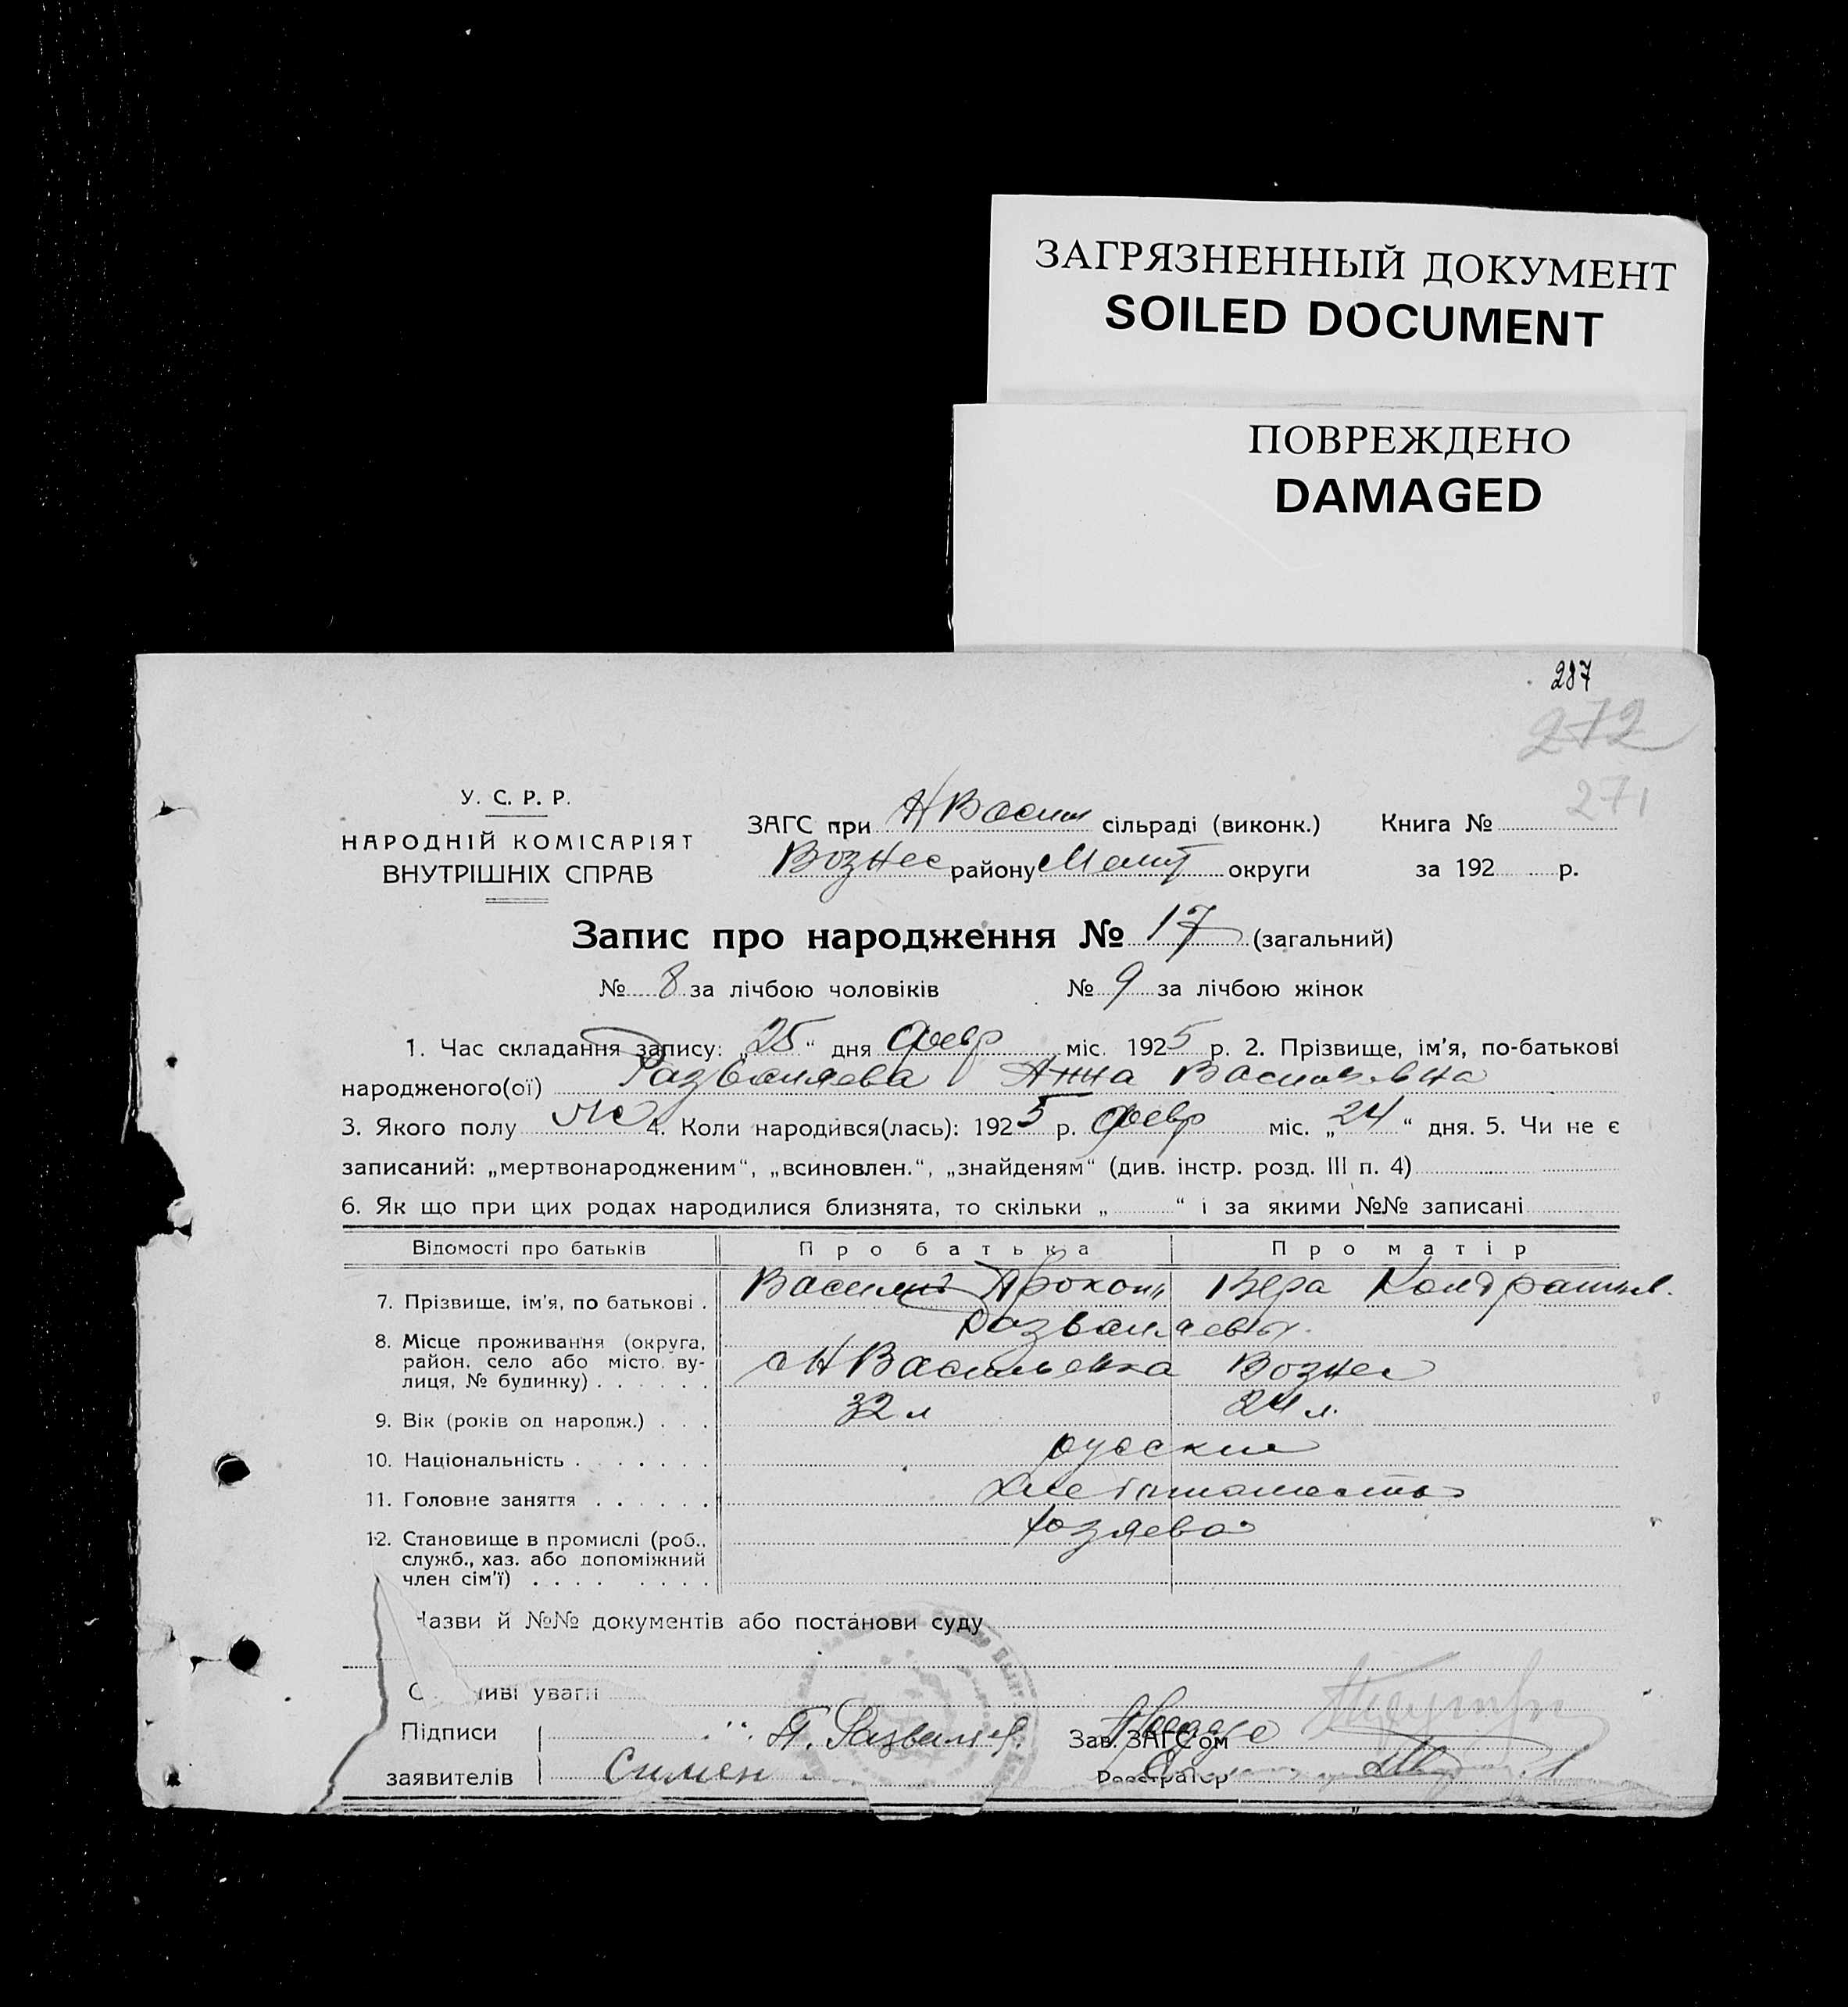 ЗАГРЯЗНЕННЫЙ ДОКУМЕНТ
SOILED DOCUMENT
ПОВРЕЖДЕНО
DAMAGED
287
272
271
У. С. Р. Р.
НАРОДНІЙ КОМІСАРІЯТ
ВНУТРІШНІХ СПРАВ
ЗАГС при НВасил сільраді (виконк.) Книга №
Вознес району Мелит округи за 192 р.
Запис про народження № 17 (загальний)
№ 8 за лічбою чоловіків № 9 за лічбою жінок
1. Час складання запису: „25“ дня февр міс. 1925 р. 2. Прізвище, ім'я, по-батькові
народженого(ої) Разваляева Анна Васильевна
3. Якого полу ж 4. Коли народився(лась): 1925 р. февр міс. „24“ дня. 5. Чи не є
записаний: „мертвонародженим“, „всиновлен.“, „знайденям“ (див. інстр. розд. III п. 4)
6. Як що при цих родах народилися близнята, то скільки „ “ і за якими №№ записані
Відомості про батьків Про батька Про матір
7. Прізвище, ім'я, по батькові . Василий Прокоп Вера Кондратьев.
Разваляевы.
8. Місце проживання (округа, район, село або місто, ву-
лиця, № будинку) . . . . . . с Н Васильевка Вознес
9. Вік (років од народж.) . . . 32 л 24 л.
10. Національність . . . . . . . русские
11. Головне заняття . . . . . . Хлебопашество
12. Становище в промислі (роб.. хозяева
служб., хаз. або допоміжний
член сім'ї) . . . . . . . .
Назви й №№ документів або постанови суду
иві уваги
Підписи П. Разваляев. Зав. ЗАГС'ом
заявителів Симен Реєстратор